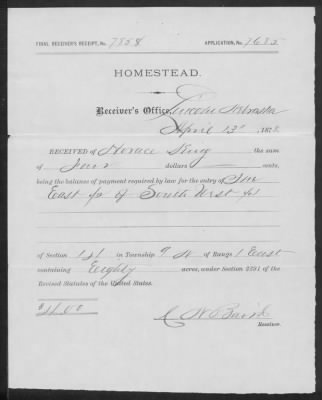 FINAL RECEIVER'S RECEIPT, No. 7358 APPLICATION, No. 7685
HOMESTEAD.
Receiver's Office, Lincoln Nebraska
April 13th 187
RECEIVED of Horace King the sum
of Four dollars cents,
being the balance of payment required by law for the entry of The
East ½ of South West ¼
of Section 14 in Township 9 N of Range 1 East
containing Eighty acres, under Section 2291 of the
Revised Statutes of the United States.
$4.00
C W Baird
Receiver.